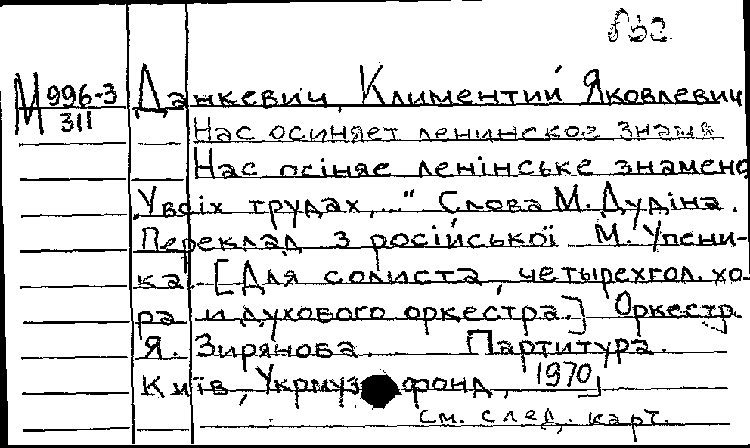 М 996-3
311
Данкевич, Климентий Яковлевич
Нас осиняет ленинское знамя
Нас осіняє ленінське знамено
„У всіх трудах,..." Слова М. Дудіна.
Переклад з російської М. Упени-
ка. [Для солиста, четырехгол. хо-
ра и духового оркестра.] Оркестр.
Я. Зирянова. Партитура.
Київ, Укрмузфонд, 1970]
см. след. карт.